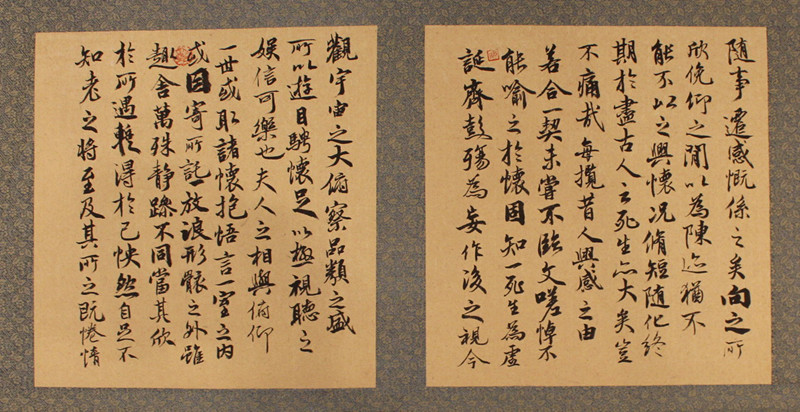 觀宇宙之大俯察品類之盛
所以遊目騁懷足以極視聽之
娛信可樂也夫人之相與俯仰
一世或取諸懷抱悟言一室之內
或因寄所託放浪形骸之外雖
趣舍萬殊靜躁不同當其欣
於所遇輒得於己怏然自足不
知老之將至及其所之既惓情
隨事遷感慨係之矣向之所
欣俛仰之閒以為陳迹猶不
能不以之興懷況脩短隨化終
期於盡古人云死生亦大矣豈
不痛哉每攬昔人興感之由
若合一契未嘗不臨文嗟悼不
能喻之於懷固知一死生為虛
誕齊彭殤為妄作後之視今